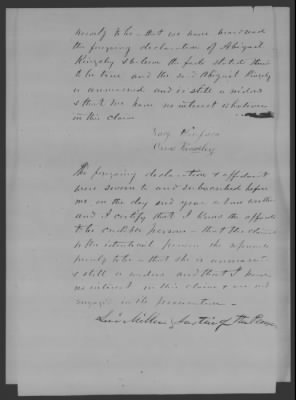 that we have
the foregoing declaration of Abigail
Kingsley & believe the facts stated
to be true and the said Abigail
is unmarried and is still a widow
& that we have no interest whatever
in this claim
The foregoing declaration & affidavit
were sworn to and subscribed before
me on the day and year above written
and I certify that I know the
to be credible persons - that the
is the identical person she represents
to be - that she is unmarried
& still a widow and that I have
no interest in this claim & am not
engaged in its prosecution -
Miller Justice of the Peace